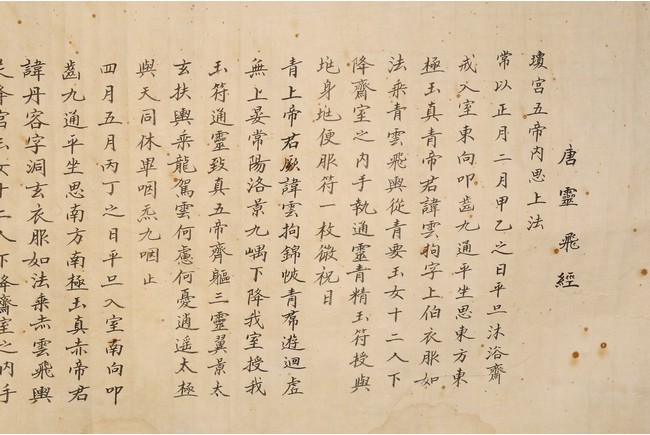 唐靈飛經
瓊宮五帝內思上法
常以正月二月甲乙之日平旦沐浴齋
戒入室東向叩齒九通平坐思東方東
極玉真青帝君諱雲拘字上伯衣服如
法乘青雲飛輿從青要玉女十二人下
降齋室之內手執通靈青精玉符授與
地身地便服符一枚微祝曰
青上帝君厥諱雲拘錦帔青帬遊迴虛
無上晏常陽洛景九嵎下降我室授我
玉符通靈致真五帝齊軀三靈翼景太
玄扶輿乘龍駕雲何慮何憂逍遥太極
與天同休畢咽炁九咽止
四月五月丙丁之日平旦入室南向叩
齒九通平坐思南方南極玉真赤帝君
諱丹容字洞玄衣服如法乘赤雲飛輿
從絳宮玉女十二人下降齋室之內手